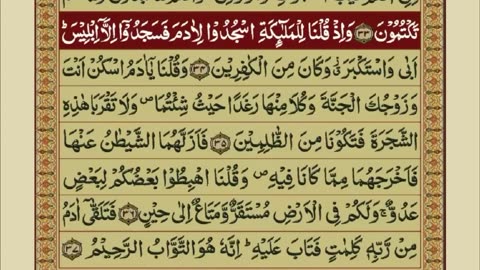 تَكْتُمُوْنَ ﴿۳۳﴾ وَاِذْ قُلْنَا لِلْمَلٰٓئِكَةِ اسْجُدُوْا لِاٰدَمَ فَسَجَدُوْٓا اِلَّآ اِبْلِيْسَ ؕ
اَبٰى وَاسْتَكْبَرَ ٭ۗ وَكَانَ مِنَ الْكٰفِرِيْنَ ﴿۳۴﴾ وَقُلْنَا يٰٓاٰدَمُ اسْكُنْ اَنْتَ
وَزَوْجُكَ الْجَنَّةَ وَكُلَا مِنْهَا رَغَدًا حَيْثُ شِئْتُمَا ۪ وَلَا تَقْرَبَا هٰذِهِ
الشَّجَرَةَ فَتَكُوْنَا مِنَ الظّٰلِمِيْنَ ﴿۳۵﴾ فَاَزَلَّهُمَا الشَّيْطٰنُ عَنْهَا
فَاَخْرَجَهُمَا مِمَّا كَانَا فِيْهِ ۪ وَقُلْنَا اهْبِطُوْا بَعْضُكُمْ لِبَعْضٍ
عَدُوٌّ ۚ وَلَكُمْ فِى الْاَرْضِ مُسْتَقَرٌّ وَّمَتَاعٌ اِلٰى حِيْنٍ ﴿۳۶﴾ فَتَلَقّٰٓى اٰدَمُ
مِنْ رَّبِّهٖ كَلِمٰتٍ فَتَابَ عَلَيْهِ ؕ اِنَّهٗ هُوَ التَّوَّابُ الرَّحِيْمُ ﴿۳۷﴾